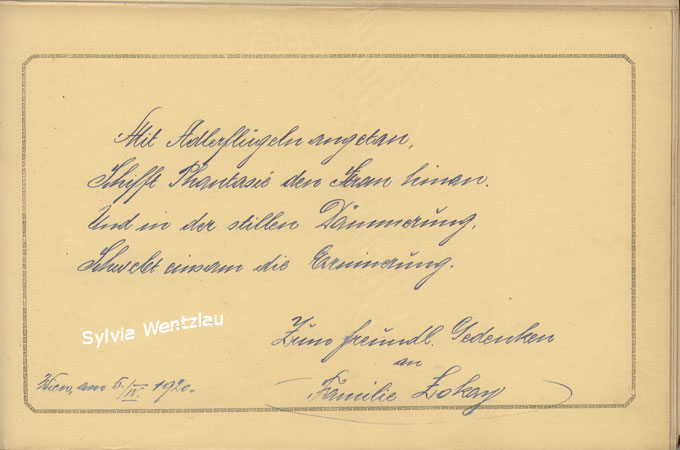 Mit Adlerflügeln angetan,
Schifft Phantasie den Stran hinan.
Und in der stillen Dämmerung,
Schwebt einsam die Erinnerung.
Sylvia Wentzlau
Zum freundl. Gedenken
an
Wien, am 5./IV. 1920.
Familie Zokay